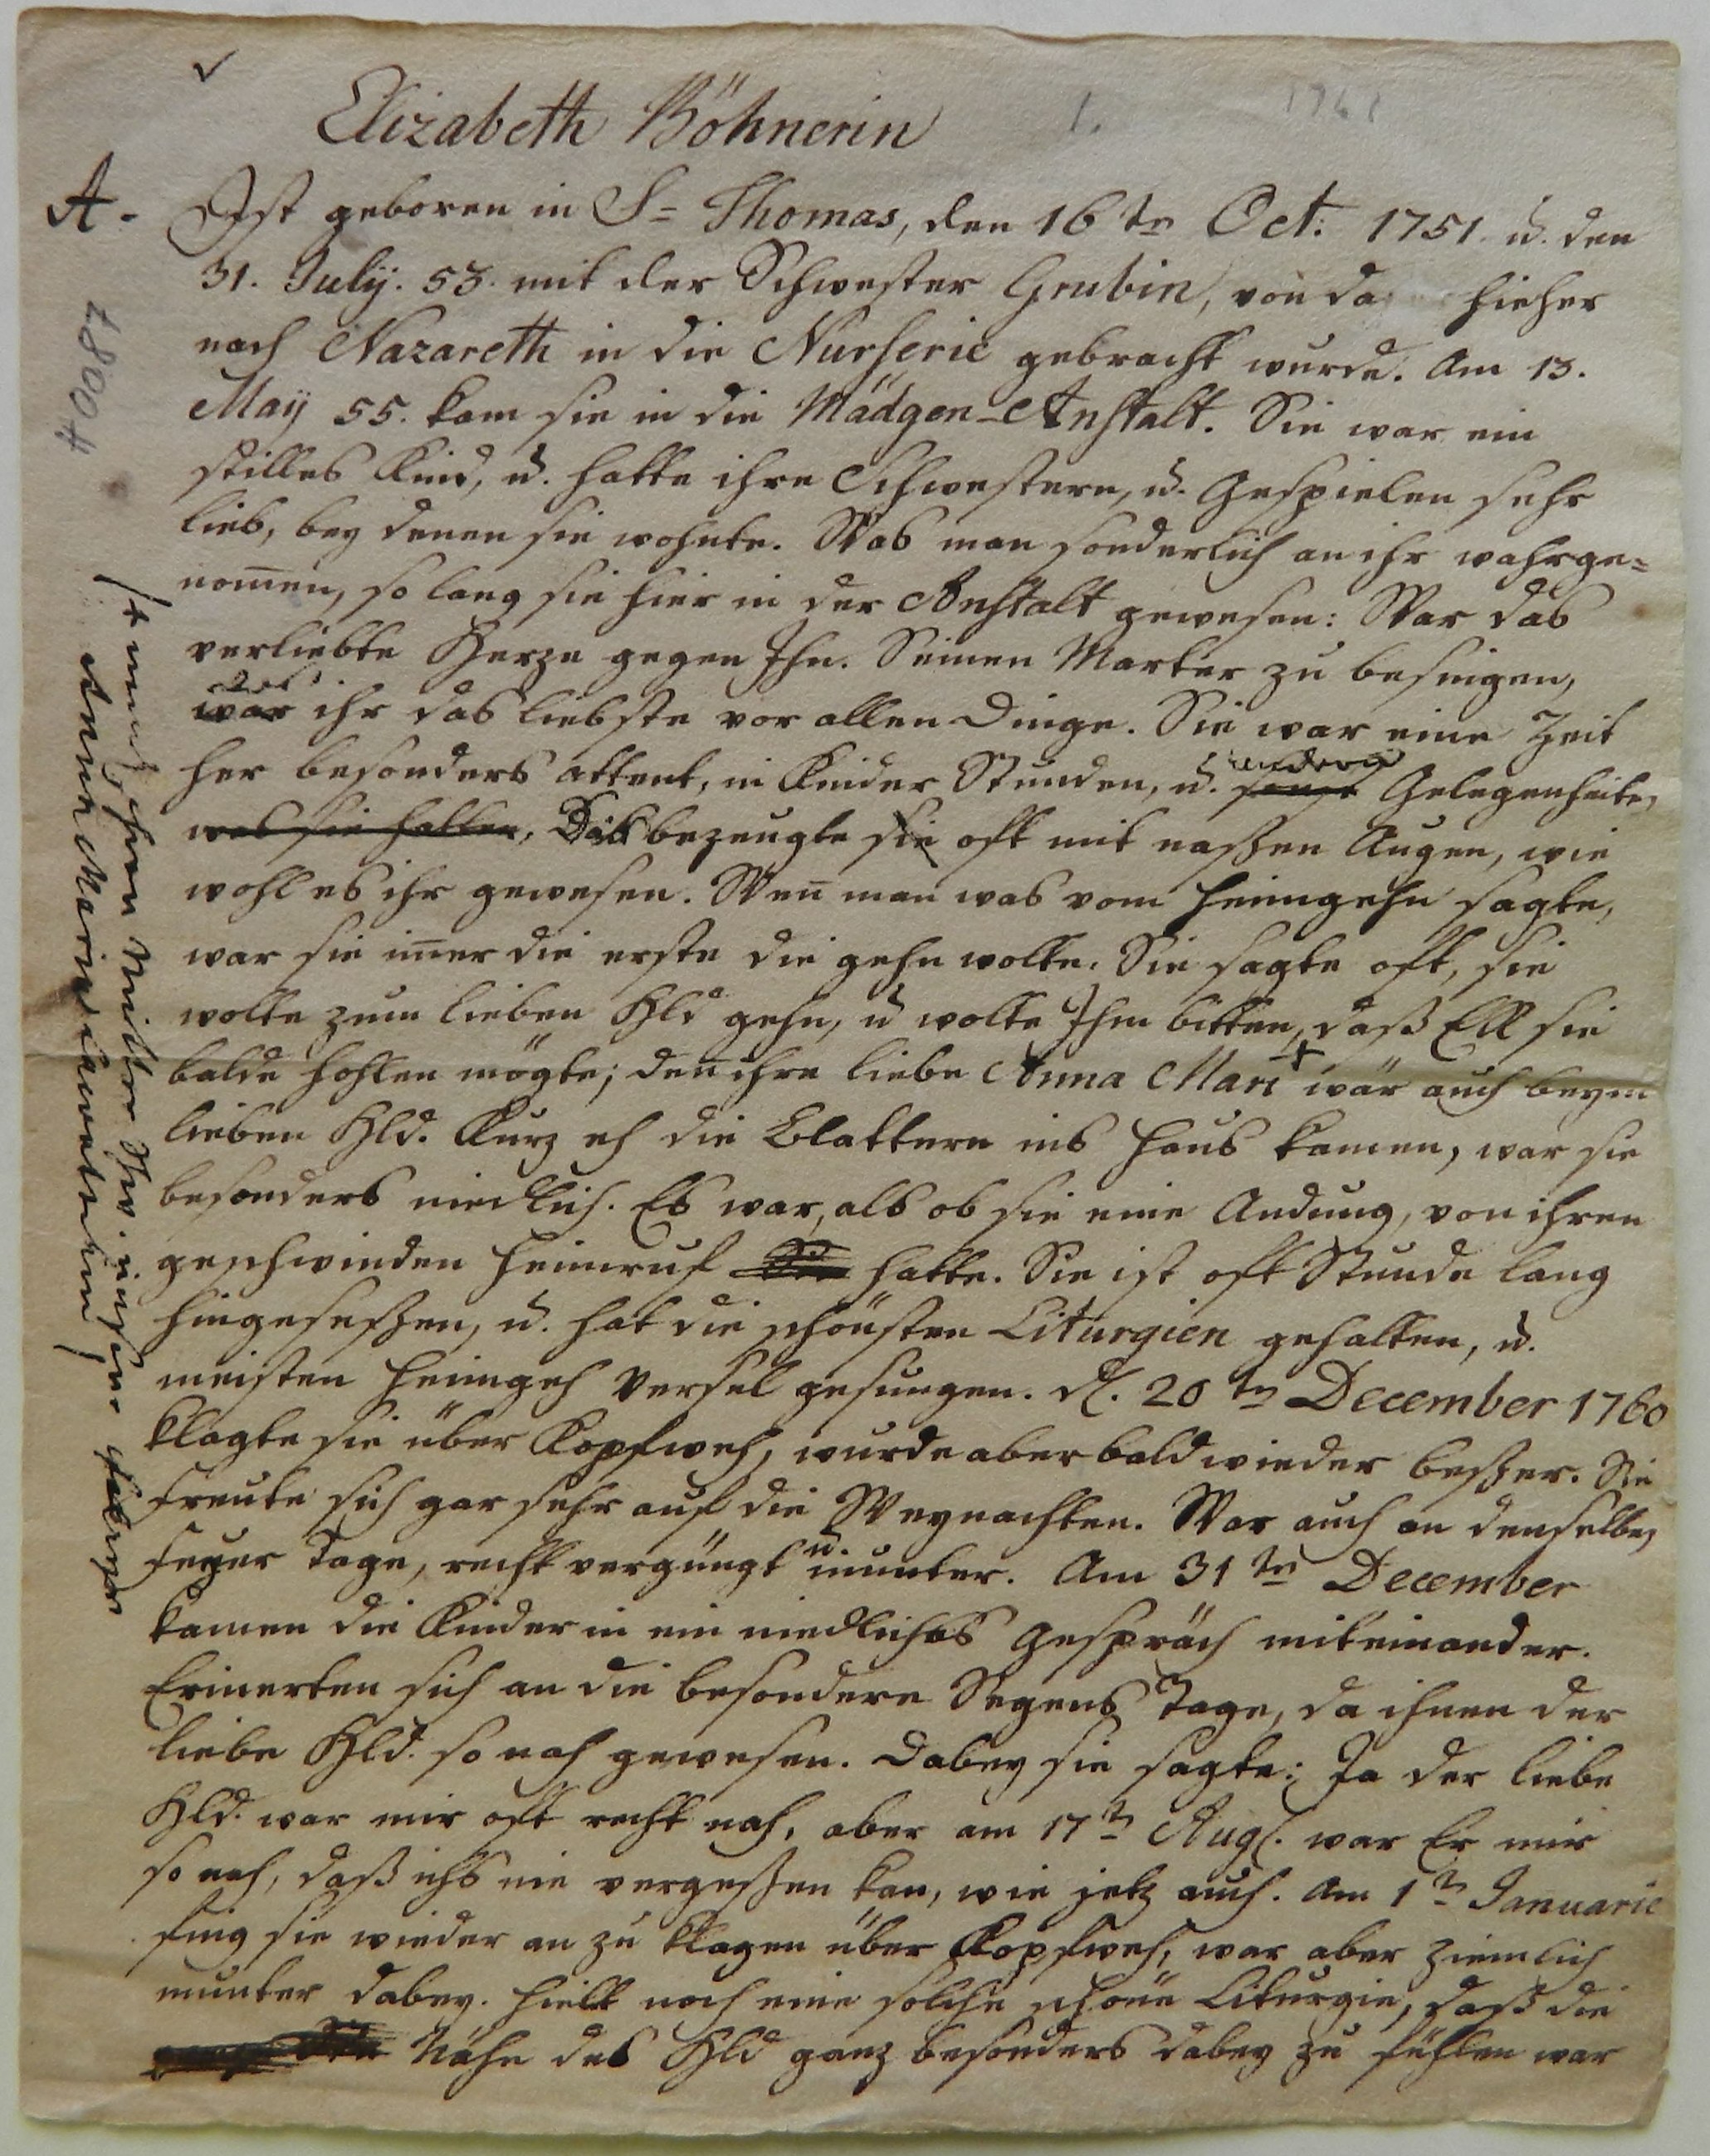 Elizabeth Böhnerin
1.
1761
A.
Ist geboren in S= Thomas, den 16 tn Oct: 1751. u. den
31. Julij. 53. mit der Schwester Grubin, von da hieher
nach Nazareth in die Nurserie gebracht wurde. Am 13.
Maij 55. kam sie in die Mädgen-Anstalt. Sie war ein
stilles Kind, u. hatte ihre Schwestern, u. Gespielen sehr
lieb, bey denen sie wohnte. Was man sonderlich an ihr wahrge=
nom̄en, so lang sie hier in der Anstalt gewesen: War das
verliebte Herze gegen Ihn. Seinen Marter zu besingen,
war ihr das liebste vor allen Dinge. Sie war eine Zeit
her besonders attent, in Kinder Stunden, u. andern sonst Gelegenheite,
was sie hatten, Das bezeugte sie oft mit naßen Augen, wie
wohl es ihr gewesen. Wen̄ man was vom heimgehn sagte,
war sie im̄er die erste die gehn wolte. Sie sagte oft, sie
wolte zum lieben Hld gehn, u wolte Ihm bitten, daß Er sie
balde hohlen mögte; den̄ ihre liebe Anna Mari + wär auch beym
lieben Hld. Kurz eh die Blattern ins Haus kamen, war sie
besonders niedlich. Es war, als ob sie eine Andung, von ihren
geschwinden Heimruf hatte. Sie ist oft Stunde lang
hingeseßen, u. hat die schönsten Liturgien gehalten, u.
meisten heimgeh Versel gesungen. d. 20 tn December 1760
klagte sie über Kopfweh, wurde aber bald wieder beßer. Sie
freute sich gar sehr auf die Weynachten. War auch an denselbe,
feyer Tage, recht vergüngt u. munter. Am 31 tn December
kamen die Kinder in ein niedliches gespräch miteinander.
Erinerten sich an die besondere Segens Tage, da ihnen der
liebe Hld. so nah gewesen. Dabey sie sagte: Ja der liebe
Hld. war mir oft recht nah, aber am 17 tn Aug. war Er mir
so nah, daß ichs nie vergeßen kan, wie jetz auch. Am 1 tn Januarie
fing sie wieder an zu klagen über Kopfweh, war aber ziemlich
munter dabey. hielt noch eine solche schöne Liturgie, daß die
Nähe des Hld ganz besonders dabey zu fühlen war